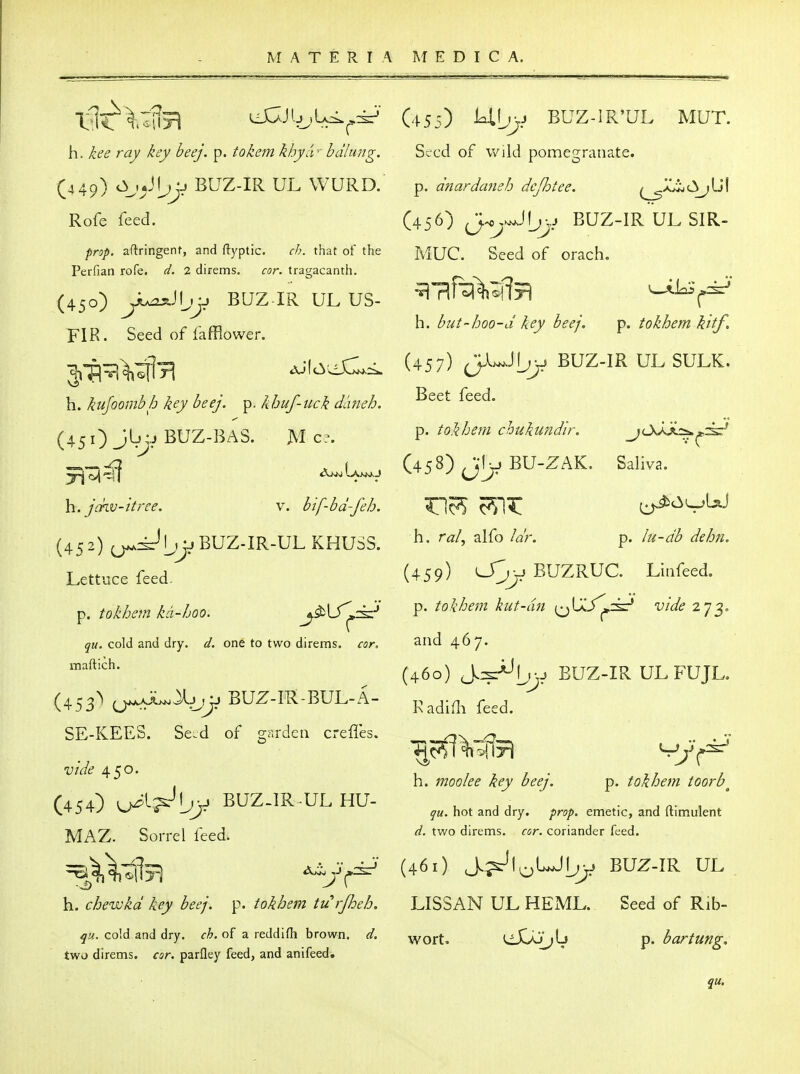 MATERIA MEDICA.
h. kee ray key beej. p. tokem khyár bálung.
(449) BUZ-IR UL WURD.
Rose seed.
prop. astringent, and styptic. ch. that of the
Persian rose. d. 2 direms. cor. tragacanth.
(450) BUZ-IR UL US-
FIR. Seed of safflower.
h. kusoombh key beej. p. khus-uck dáneh.
(451) BUZ-BAS. M
h. jáw-itree. v. bis-bá-seh.
(452) BUZ-IR-UL KHUSS.
Lettuce seed.
p. tokhem ká-hoo.
qu. cold and dry. d. one to two direms. cor.
mastich.
(453) BUZ-IR-BUL-A-
SE-KEES. Seed of garden cresses.
vide 450.
(454) BUZ-IR-UL HU-
MAZ. Sorrel seed.
h. chewká key beej. p. tokhem tu'rsheh.
qu. cold and dry. ch. of a reddish brown. d.
two direms. cor. parsley seed, and aniseed.
(455) BUZ-IR'UL MUT.
Seed of wild pomegranate.
p. ánardaneh deshtee.
(456) BUZ-IR UL SIR-
MUC. Seed of orach.
h. but-hoo-á key beej. p. tokhem kitf.
(457) BUZ-IR UL SULK.
Beet seed.
p. tokhem chukundir.
(458) BU-ZAK. Saliva.
राल लार
h. ral, also lár. p. lu-áb dehn.
(459) BUZRUC. Linseed.
p. tokhem kut-án vide 273.
and 467.
(460) BUZ-IR UL FUJL.
Radish seed.
h. moolee key beej. p. tokhem toorb
qu. hot and dry. prop. emetic, and stimulent
d. two direms. cor. coriander seed.
(461) BUZ-IR UL
LISSAN UL HEML. Seed of Rib-
wort. p. bartung.
qu.